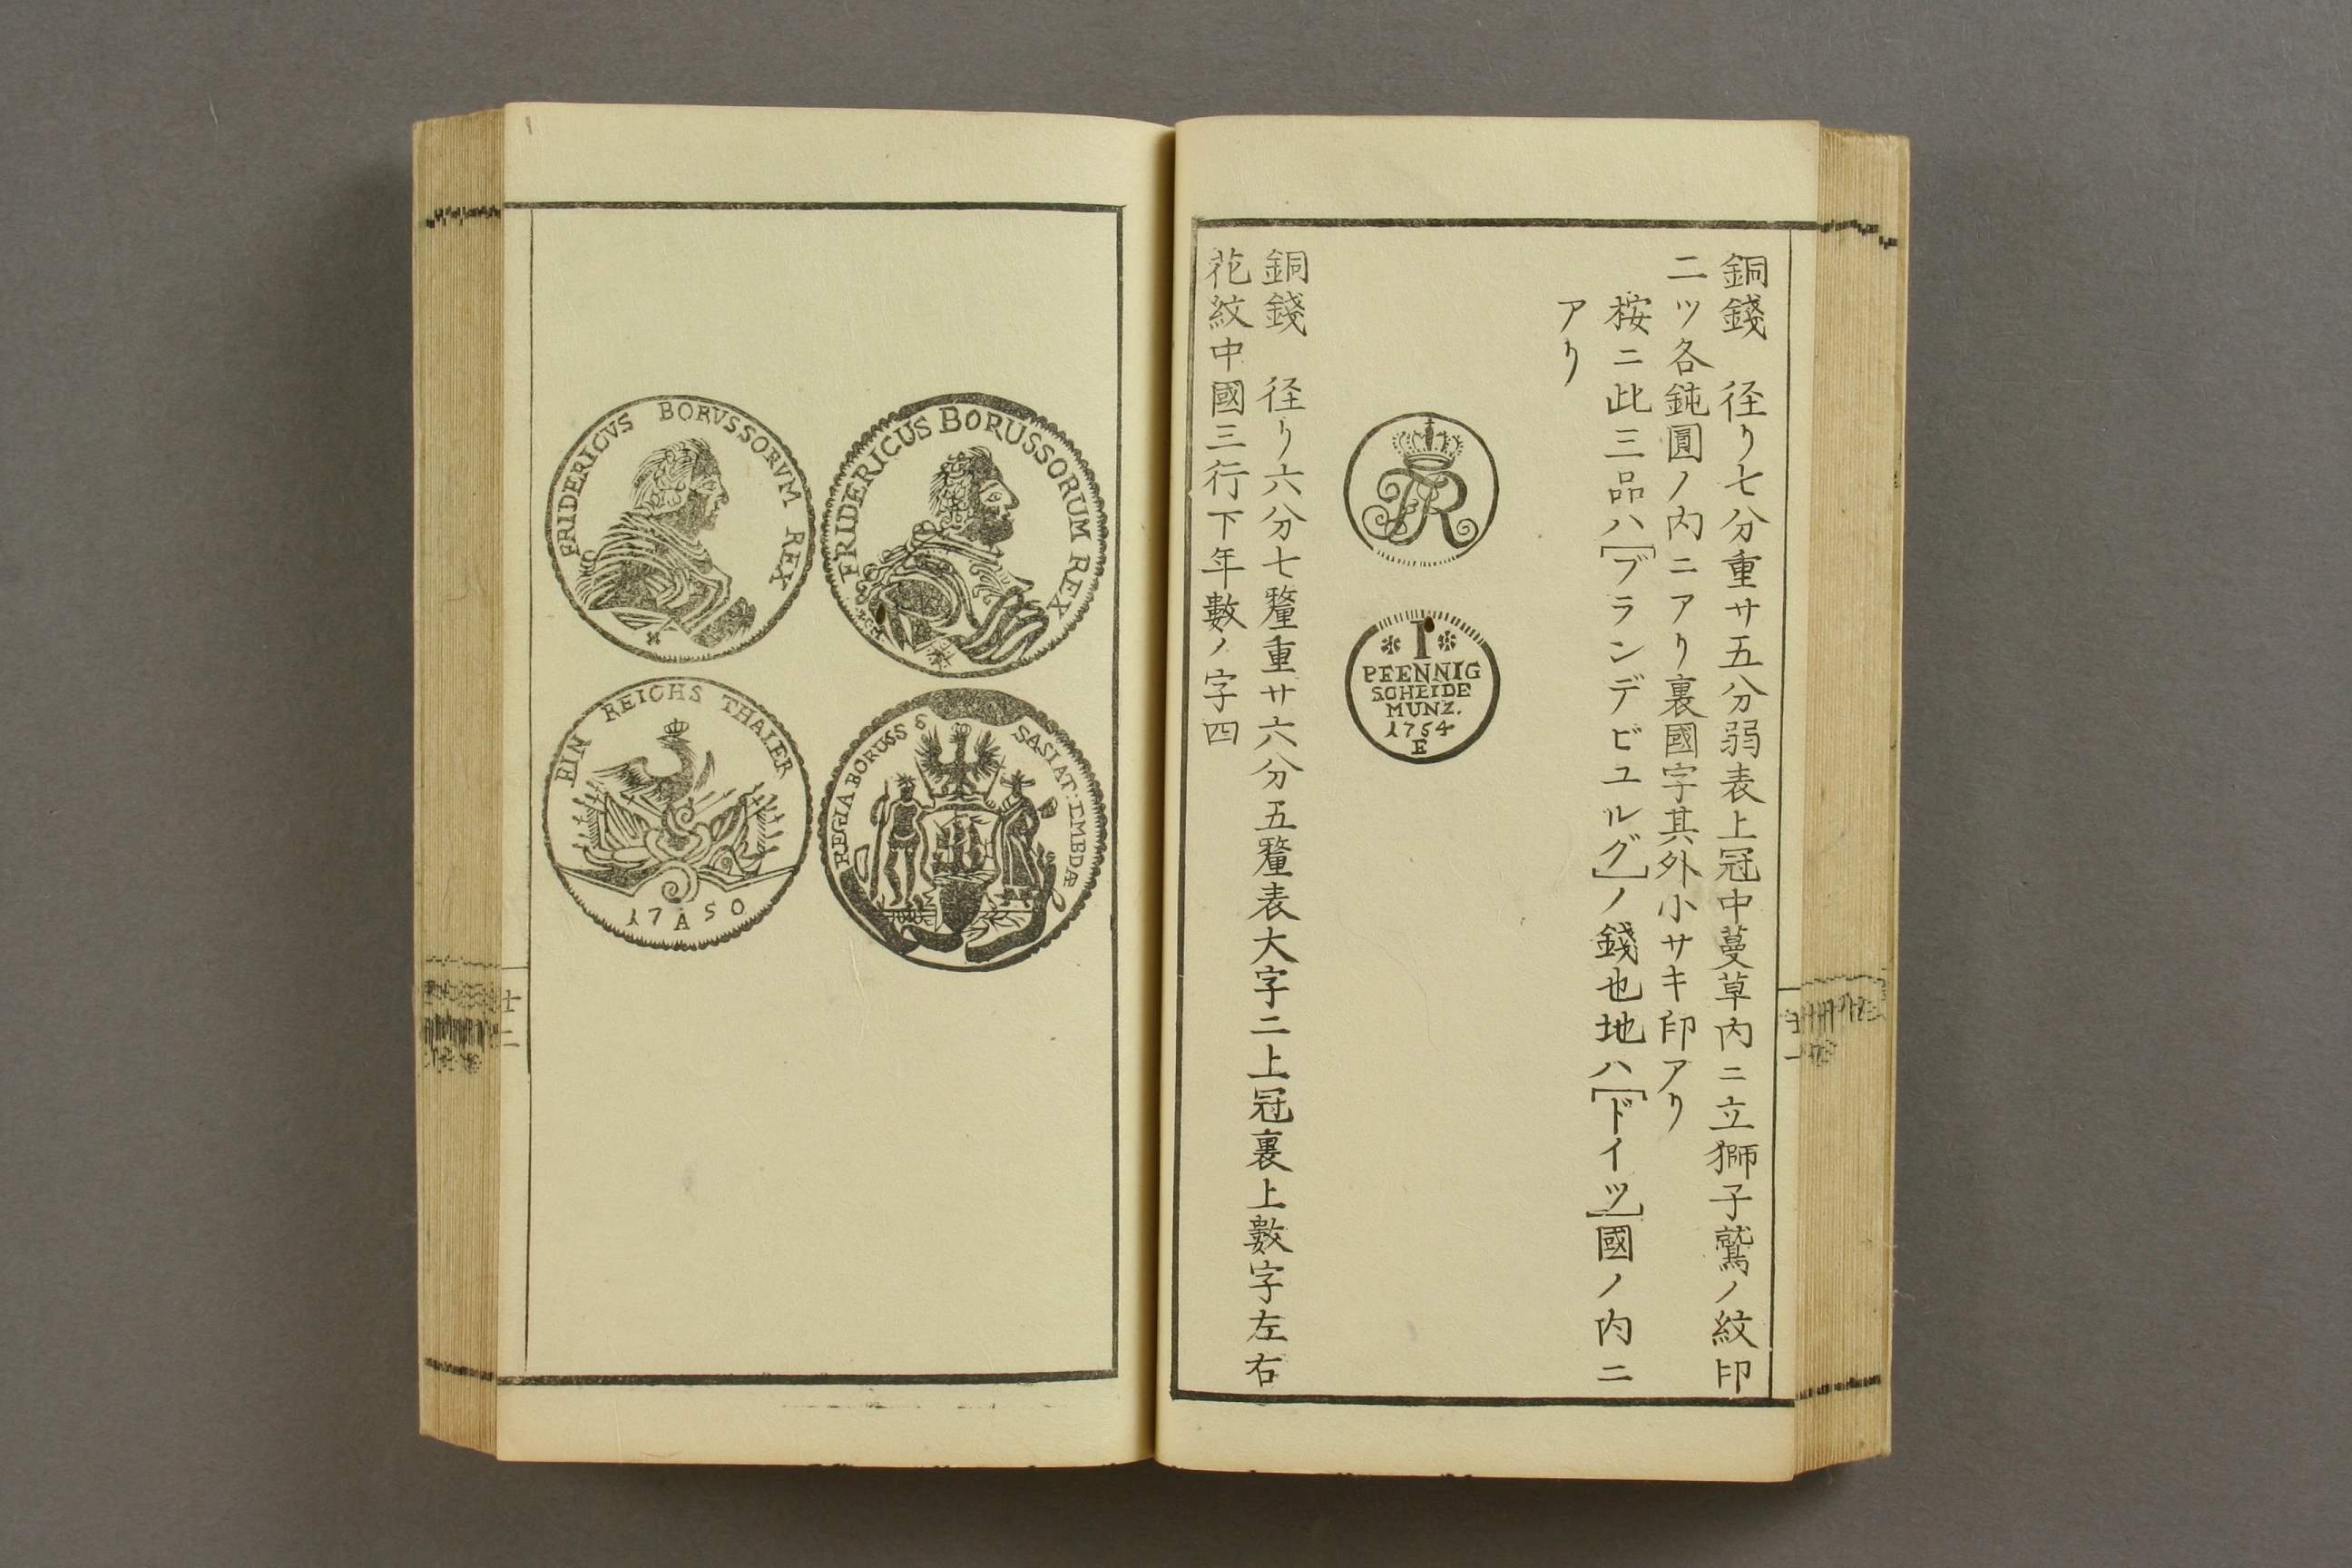 銅錢　径リ七分重サ五分弱表上冠中蔓草内ニ立獅子鷲ノ紋印
二ツ各鈍圓ノ内ニアリ裏國字其外小サキ印アリ
桉ニ此三品ハ[ブランデビユルグ]ノ錢也地ハ[ドイツ]國ノ内ニ
アリ
FR
1
PFENNIG
SCHEIDE
MUNZ.
1754
E
銅錢　径リ六分七釐重サ六分五釐表大字二上冠裏上數字左右
花紋中國三行下年數ノ字四
十一
FRIDERICUS BORUSSORUM REX
REGIA BORUSS S SASIAT:EMBDÆ
FRIDERICVS BORVSSORVM REX
EIN REICHS THALER
17 A 50
十二